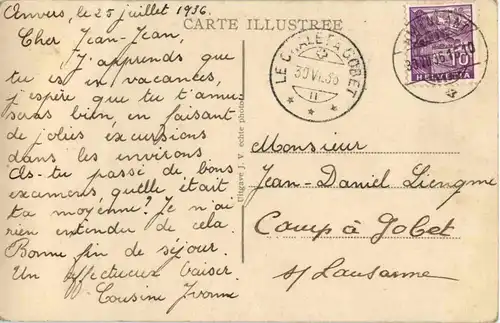 Anvers, le 25 juillet 1936.
CARTE ILLUSTREE
Cher Jean-Jean,
J'apprends que
tu es en vacances,
j'espère que tu t'amu-
seras bien, en faisant
de jolies excursions
dans les environs
As-tu passé de bons
examens quelle était
ta moyenne? Je n'ai
rien entendu de cela.
Bonne fin de séjour.
Un affectueux baiser
Cousine Yvonne
Uitgave J. V. echte photo
LE CHALET A GOBET
30.VII.36
11
30.VII.36 11-10
10
HELVETIA
Monsieur
Jean-Daniel Liengme
Camp à Gobet
s/ Lausanne